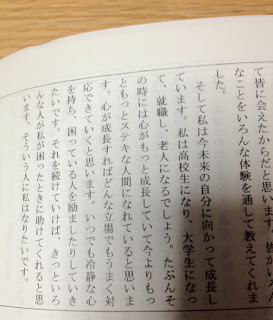 て皆に会えたからだと思います。皆がい
なことをいろんな体験を通して教えてくれま
した。
そして私は今未来の自分に向かって成長し
ています。私は高校生になり、大学生になっ
て、就職し、老人になるでしょう。たぶんそ
の時には心がもっと成長していて今よりもっ
ともっとステキな人間となれていると思いま
す。心が成長すればどんな立場でもうまく対
応できていくと思います。いつでも冷静な心
を持ち、困っている人を励ましたりしていき
たいです。それを続けていけば、きっといろ
んな人が私が困ったときに助けてくれると思
います。そういう人に私はなりたいです。